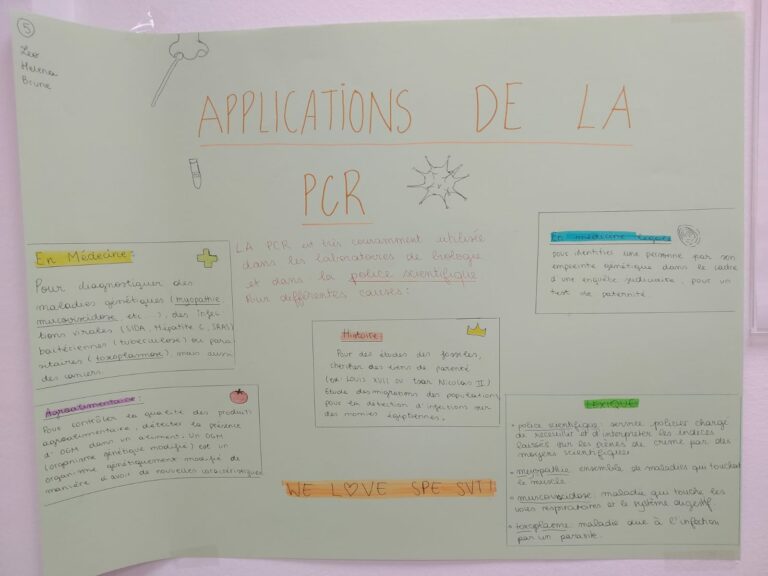 5
Leo
Helena
Brune
APPLICATIONS DE LA
PCR
LA PCR est très couramment utilisée
dans les laboratoires de biologie
et dans la police scientifique
Pour différentes causes :
En Médecine:
Pour diagnostiquer des
maladies génétiques (myopathie
mucoviscidose, etc ...), des infec
tions virales (SIDA, Hépatite C, SRAS)
bactériennes (tuberculose) ou para
sitaires (toxoplasmose), mais aussi
des cancers.
Agroalimentaire:
Pour contrôler la qualité des produits
agroalimentaire, détecter la présence
d'OGM dans un aliment. Un OGM
(organisme génétique modifié) est un
organisme génétiquement modifié de
manière d'avoir de nouvelles caractéristiques
Histoire
Pour des études des fossiles,
chercher des liens de parenté
(ex Louis XVII ou tsar Nicolas II)
Etude des migrations des population,
pour la détection d'infections sur
des momies égyptiennes.
En médecine légale
pour identifier une personne par son
empreinte génétique dans le cadre
d'une enquête judiciaire, pour un
test de paternité.
WE LOVE SPE SVT!
• police scientifique: service policier chargé
de recueillir et d'interpréter les indices
laissés sur les scènes de crime par des
moyens scientifiques
• myopathie ensemble de maladies qui touchent
le muscle
• muscoviscidose: maladie qui touche les
voies respiratoires et le système digestif.
• toxoplasme maladie due à l'infection
par un parasite.